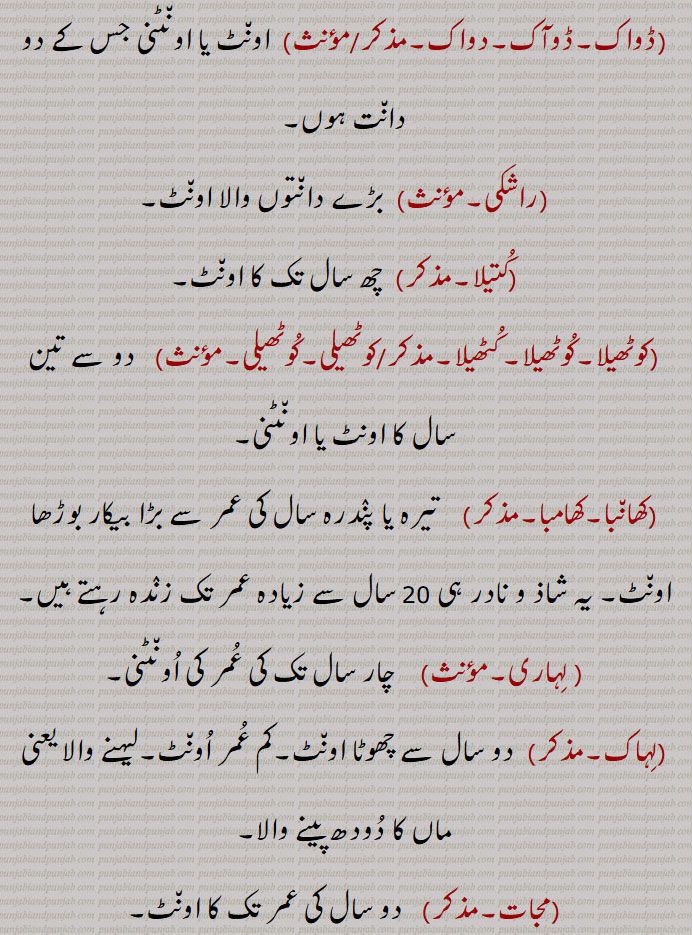 (ڈواک۔ ڈوآک۔ دواک۔مذکر/مؤنث) اونٚٹ یا اونٚٹنی جس کے دو
دانٚت ہوں۔
(راشکی۔مؤنث) بڑے دانٚتوں والا اونٚٹ۔
(کُتیلا۔مذکر) چھ سال تک کا اونٚٹ۔
(کوٹھیلا۔کُوٹھیلا۔کُٹھیلا۔مذکر/کوٹھیلی۔کُوٹھیلی۔مؤنث) دو سے تین
سال کا اونٹ یا اونٚٹنی۔
(کھانٚبا۔کھامبا۔مذکر) تیرہ یا پنٚدرہ سال کی عمر سے بڑا بیکار بوڑھا
اونٚٹ۔ یہ شاذ و نادر ہی 20 سال سے زیادہ عمر تک زنٚدہ رہتے ہیں۔
( لِہاری۔مؤنث) چار سال تک کی عُمر کی اُونٚٹنی۔
(لِہاک۔مذکر) دو سال سے چھوٹا اونٚٹ۔کم عُمر اُونٚٹ۔لیہنے والا یعنی
ماں کا دُودھ پینے والا۔
(مجات۔مذکر) دو سال کی عمر تک کا اونٚٹ۔